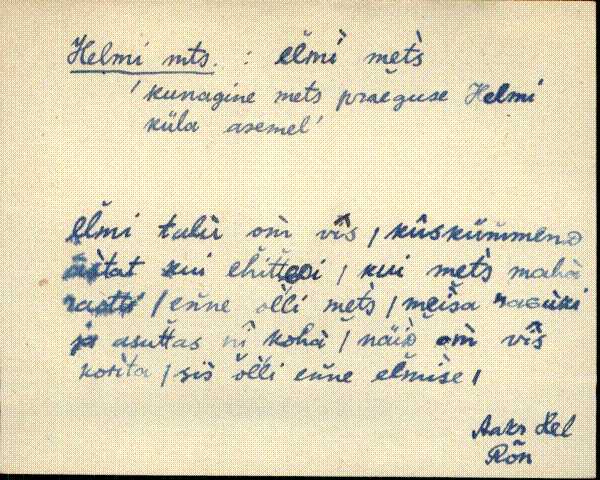 Helmi mts. : eľmi metś
'kunagine mets praeguse Helmi
küla asemel'
eľmi talu om vīs / kūskümmeno
āstat kui ehitteDi / kui metś maha
/ enne olli metś / meisa
ja asuttas nī koha / näiD om vīs
korita / siś olli enne elmise /
Aakr Hel
Rõn